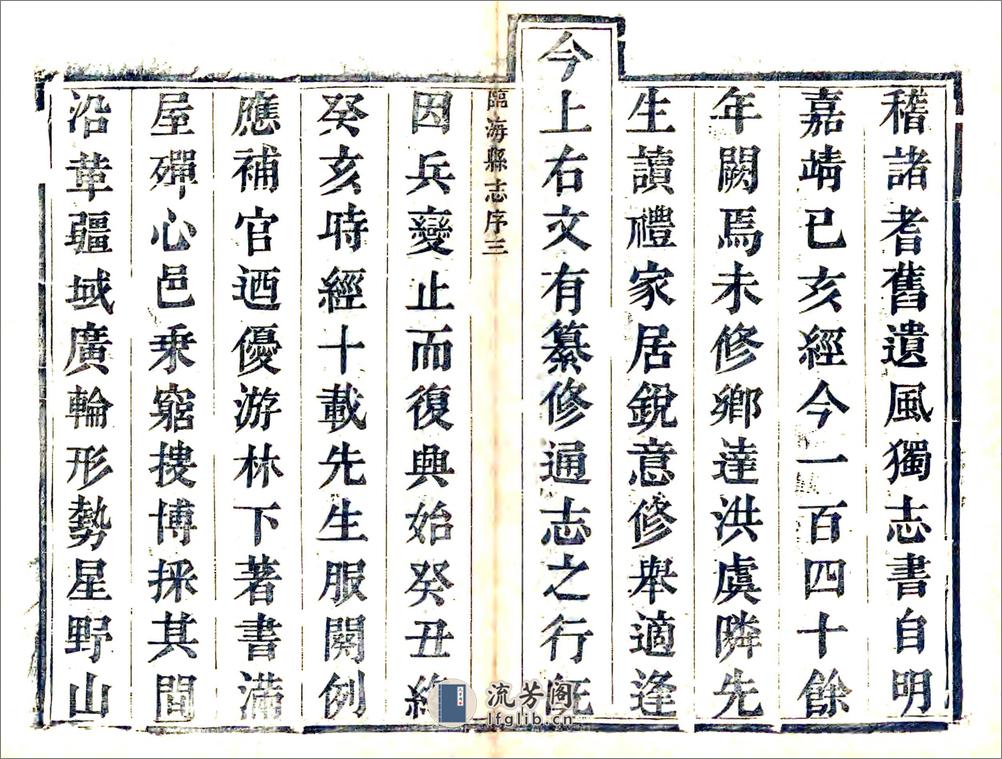 稽諸耆舊遺風獨志書自明
嘉靖己亥經今一百四十餘
年闕焉未修鄉達洪虞隣先
生讀禮家居銳意修舉適逢
今上右文有纂修通志之行旣
臨海縣志序三
因兵變止而復興始癸丑終
癸亥時經十載先生服闋例
應補官迺優游林下著書滿
屋殫心邑乘窮搜博採其間
沿革疆域廣輪形勢星野山
流芳阁
lfglib.cn